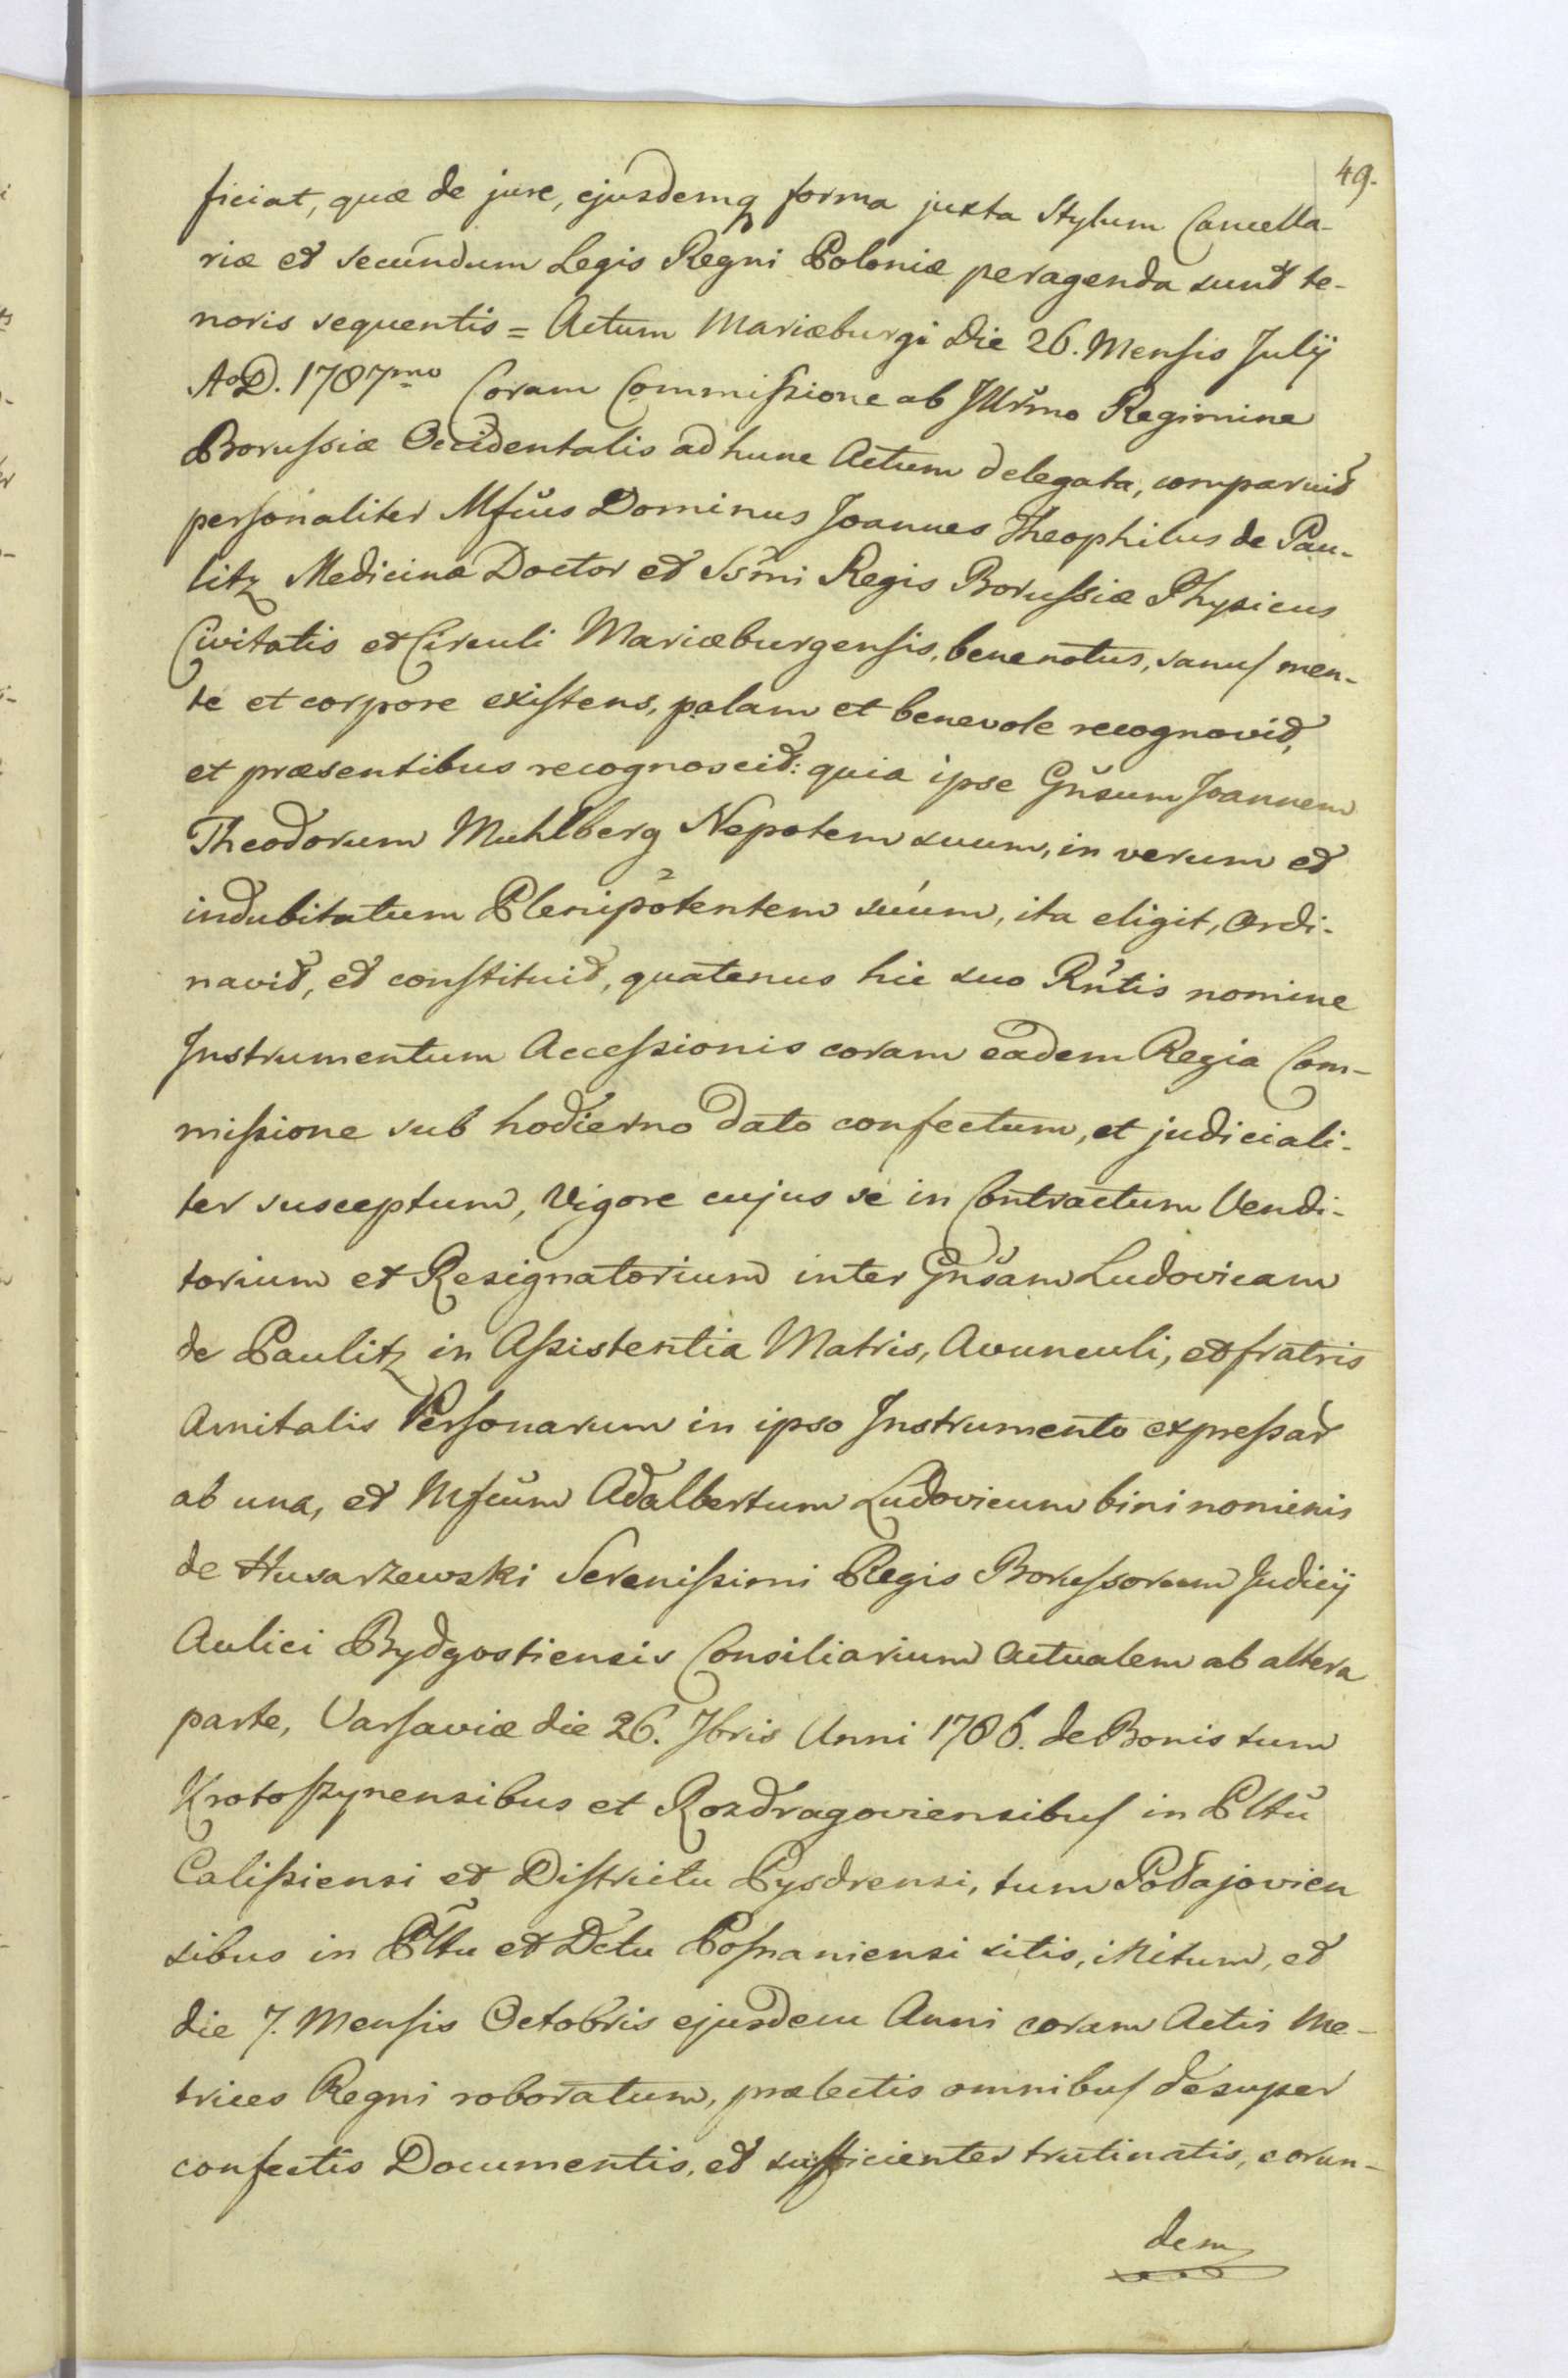 49.
ficiat, quæ de jure, ejusdemq forma juxta Stylum Cancella-
riæ et secundum Legis Regni Poloniæ peragenda sunt te-
noris sequentis = Actum Mariæburgi die 26. Mensis Julÿ
AoD. 1787mo Coram Commissione ab Jllrmo Regimine
Borussiæ Occidentalis ad hunc Actum delegata, comparuit
personaliter Mfcus Dominus Joannes Theophilus de Pau-
litz Medicinæ Doctor et Ssmi Regis Borussiæ Physicus
Civitatis et Circuli Mariæburgensis, bene notus, sanus men-
te et corpore existens, palam et benevole recognovit,
et præsentibus recognoscit: quia ipse Gnsum Joannem
Theodorum Muhlberg Nepotem suum, in verum et
indubitatum Plenipotentem suum, ita eligit, Ordi-
navit, et constituit, quatenus hic suo Rntis nomine
Instrumentum Accessionis coram eadem Regia Com-
missione sub hodierno dato confectum, et judiciali-
ter susceptum, Vigore cujus se in Contractum Vendi-
torium et Resignatorium inter Gnsam Ludovicam
de Paulitz in Assistentia Matris, Avunculi, et fratris
Amitalis Personarum in ipso Instrumento expressar
ab una, et Mfcum Adalbertum Ludovicum bini nominis
de Husarzewski Serenissimi Regis Borussorum Judicÿ
Aulici Bydgostiensis Consiliarium Actualem ab altera
parte, Varsaviæ die 26. 7bris Anni 1786. de Bonis tum
Krotoszynensibus et Rozdragoviensibus in Pltu
Calissiensi et Districtu Pysdrensi, tum Podajovien
sibus in Pltu et Dctu Posnaniensi sitis, initum, et
die 7. Mensis Octobris ejusdem Anni coram Actis Me-
trices Regni roboratum, prælectis omnibus desuper
confectis Documentis, et sufficienter trutinatis, eorun-
dem